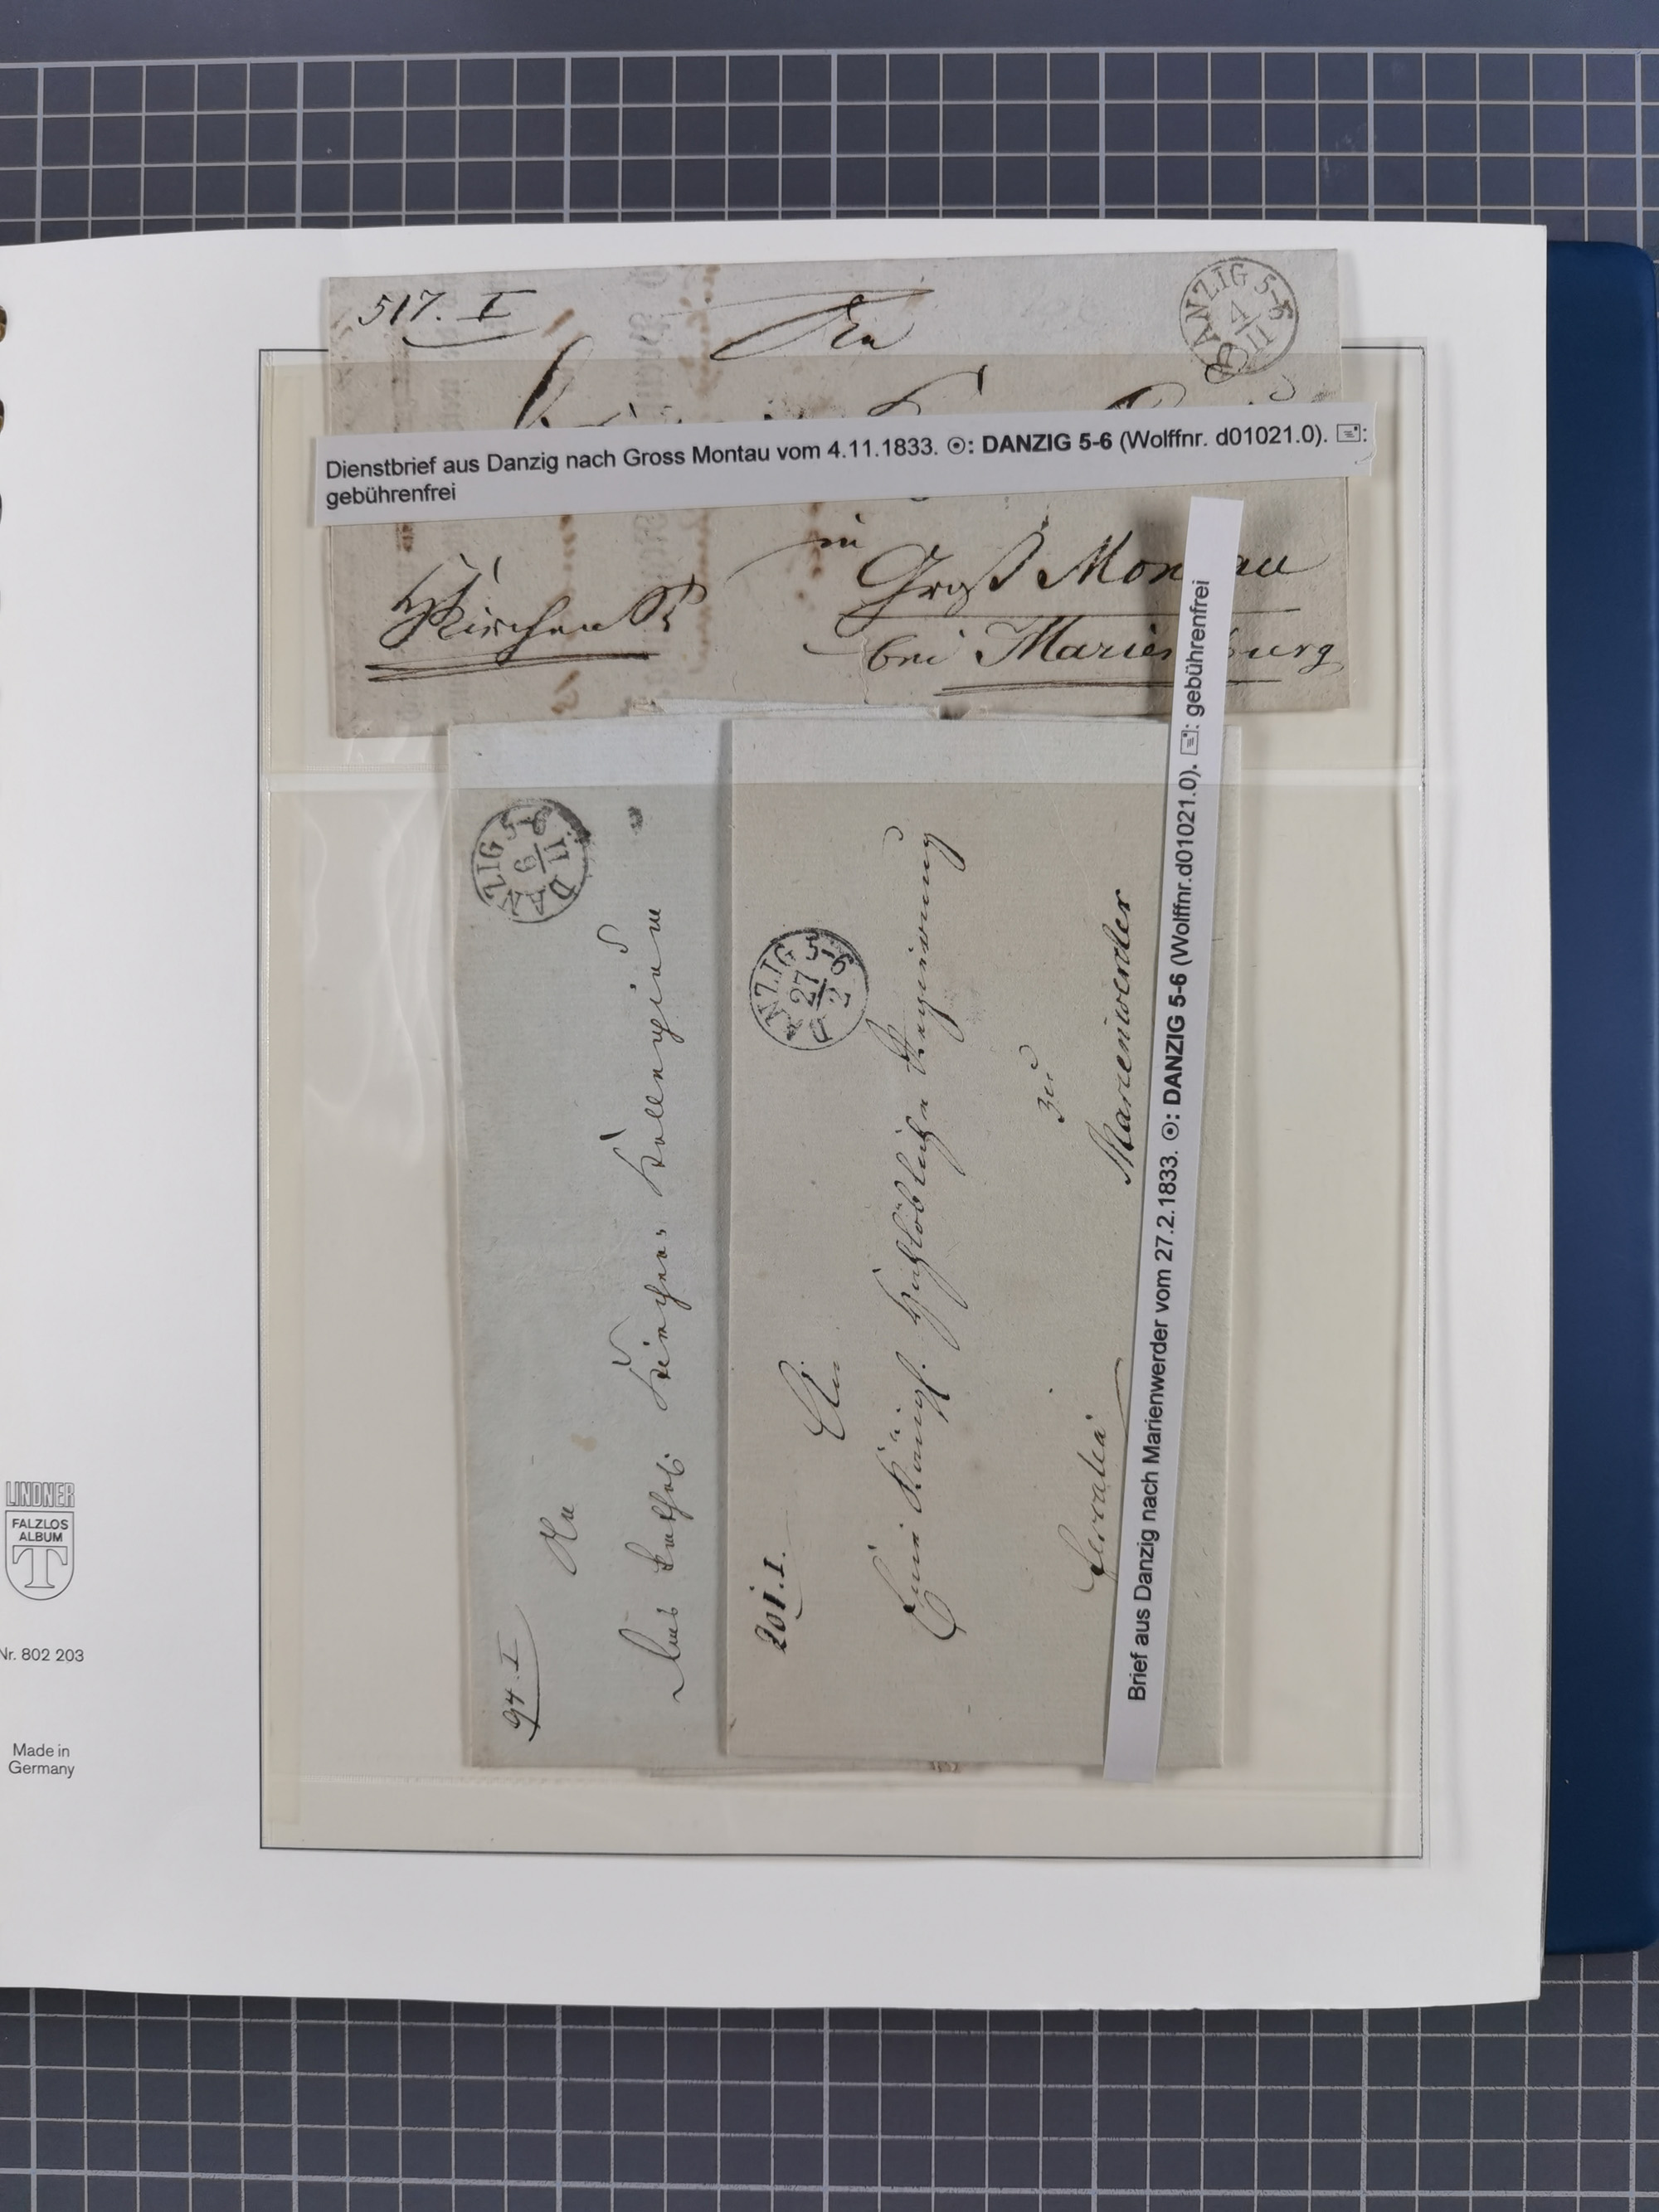 517. I
An
DANZIG 5-6
4
11
Dienstbrief aus Danzig nach Gross Montau vom 4.11.1833. ☉: DANZIG 5-6 (Wolffnr. d01021.0). 🖃:
gebührenfrei
in
Groß Mon au
bei Marien burg
Kirchen
94. I
DANZIG 5-6
9
11
An
Das Kathol: Kirchen Kollegium
201. I.
DANZIG 5-6
27
2
An
Eine Königl. Hochlöbliche Regierung
zu
Marienwerder
Brief aus Danzig nach Marienwerder vom 27.2.1833. ☉: DANZIG 5-6 (Wolffnr.d01021.0). 🖃: gebührenfrei
LINDNER
FALZLOS
ALBUM
T
Nr. 802 203
Made in
Germany